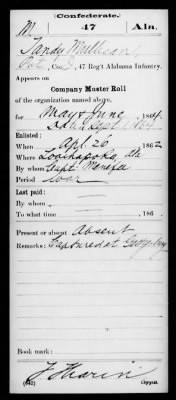 Confederate.
M | 47 | Ala.
Tandy Mullican
Pvt, Co. , 47 Reg't Alabama Infantry.
Appears on
Company Muster Roll
of the organization named above,
for May & June, 1864.
Sept 1, 1864
Enlisted:
When Apl. 26, 1862
Where Loachapoka, Ala
By whom Capt. Menefee
Period war
Last paid:
By whom
To what time , 186 .
Present or absent Absent
Remarks: Captured at Gettysburg
Book mark:
(642) Copyist.